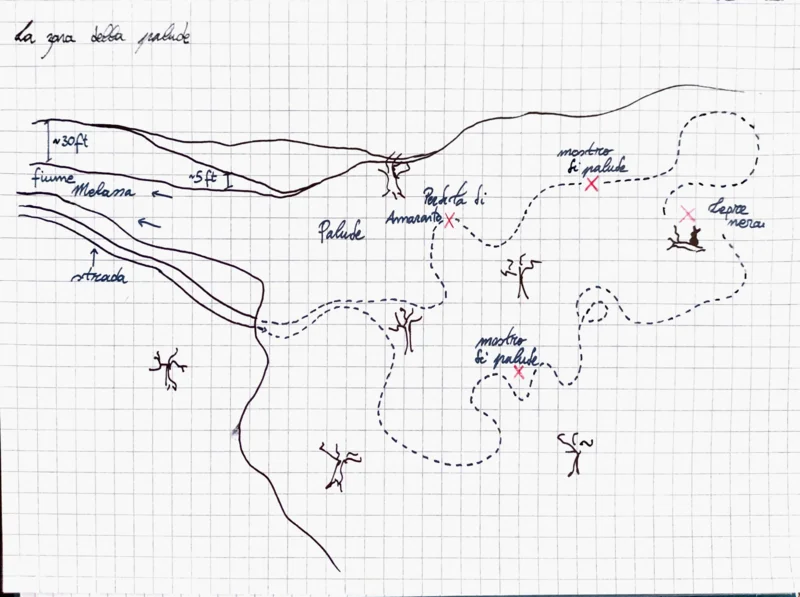 La zona della palude
~30ft
fiume Melassa
~5ft
strada
Palude
Perdita di
Amarante
mostro
di palude
Lepre
nera
mostro
di palude